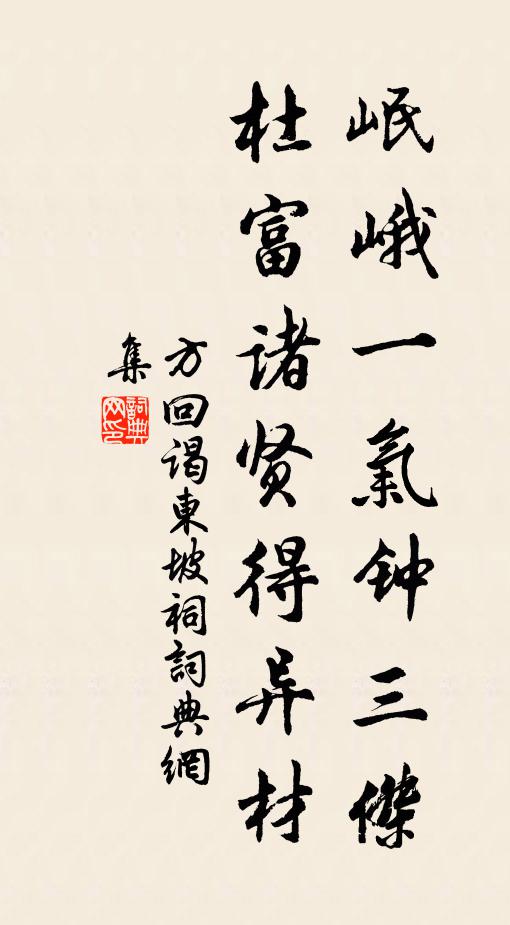 岷峨一氣钟三傑
杜富诸贤得异材
方回谒東坡祠詞典網
集
詞典網印